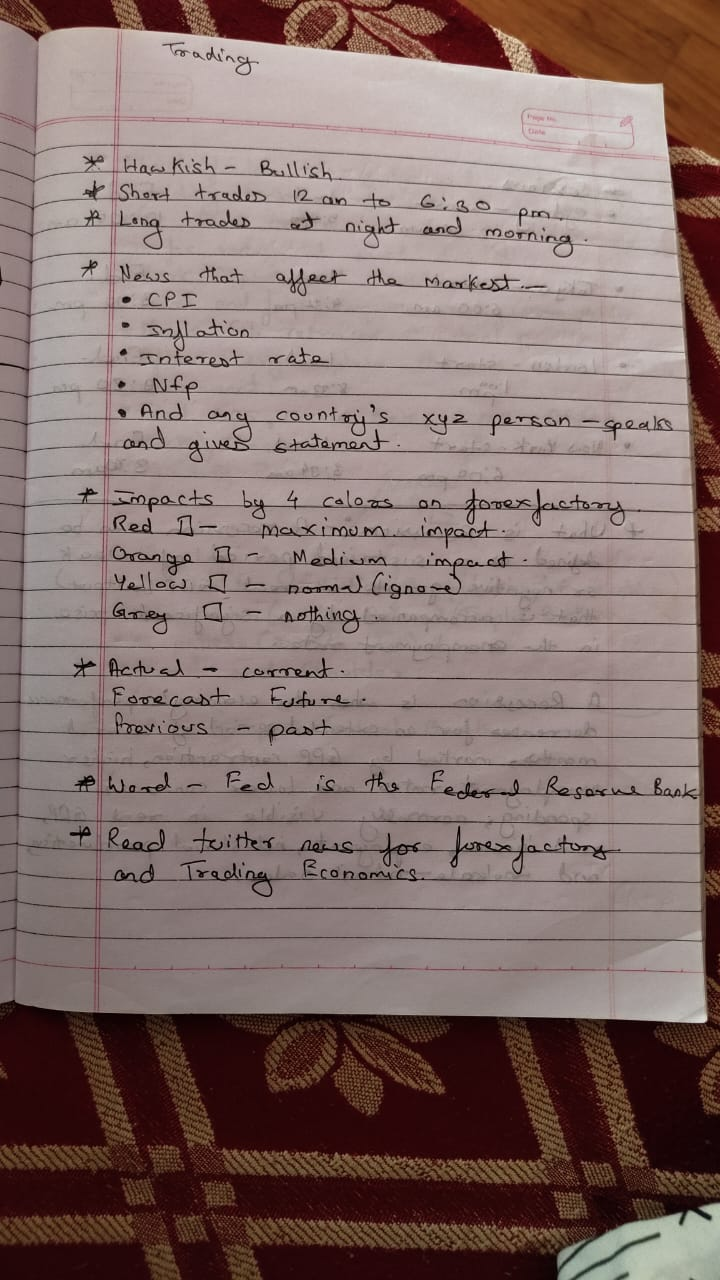 Trading
Page No.
Date
* Hawkish - Bullish.
* Short trades 12 am to 6:30 pm.
* Long trades at night and morning.
* News that affect the Markest. -
• CPI
• Inflation
• Interest rate
• Nfp
• And any country's xyz person - speaks
and gives statement.
* Impacts by 4 colors on forexfactory.
Red □ - maximum impact.
Orange □ - Medium impact.
Yellow □ - normal (ignore)
Grey □ - nothing.
* Actual - current.
Forecast Future.
Previous - past
* Word - Fed is the Federal Reserve Bank
* Read twitter news for forexfactory
and Trading Economics.